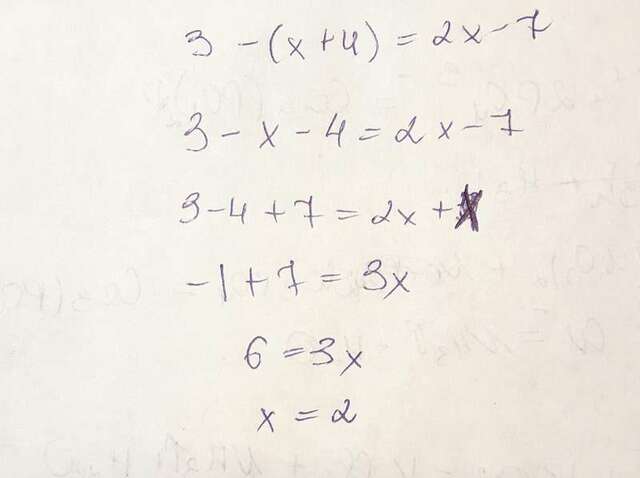 3 - (x+4) = 2x-7
3 - x - 4 = 2x - 7
3-4+7 = 2x + x
-1+7 = 3x
6 = 3x
x = 2